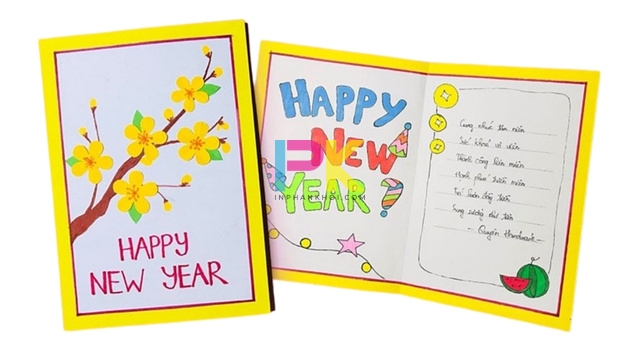 HAPPY
NEW YEAR
HAPPY
NEW
YEAR
INPHANKHOI.COM
Cung chúc tân niên
Sức khoẻ vô biên
Thành công liên miên
Hạnh phúc triền miên
Túi luôn đầy tiền
Sung sướng như tiên
- Quyên Handmade -